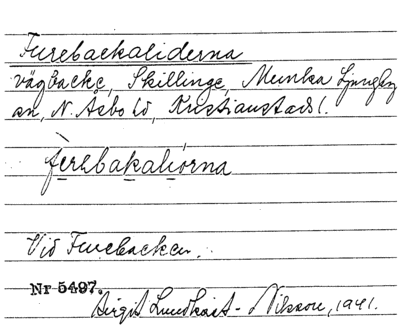 Furebackaliderna
vägbacke, Skillinge, Munka Ljungby
sn, N. Åsbo hd, Kristianstads l.
fɛrɛbakaliorna
Vid Furebacken.
Nr 5497.
Birgit Lundkvist-Nilsson, 1941.